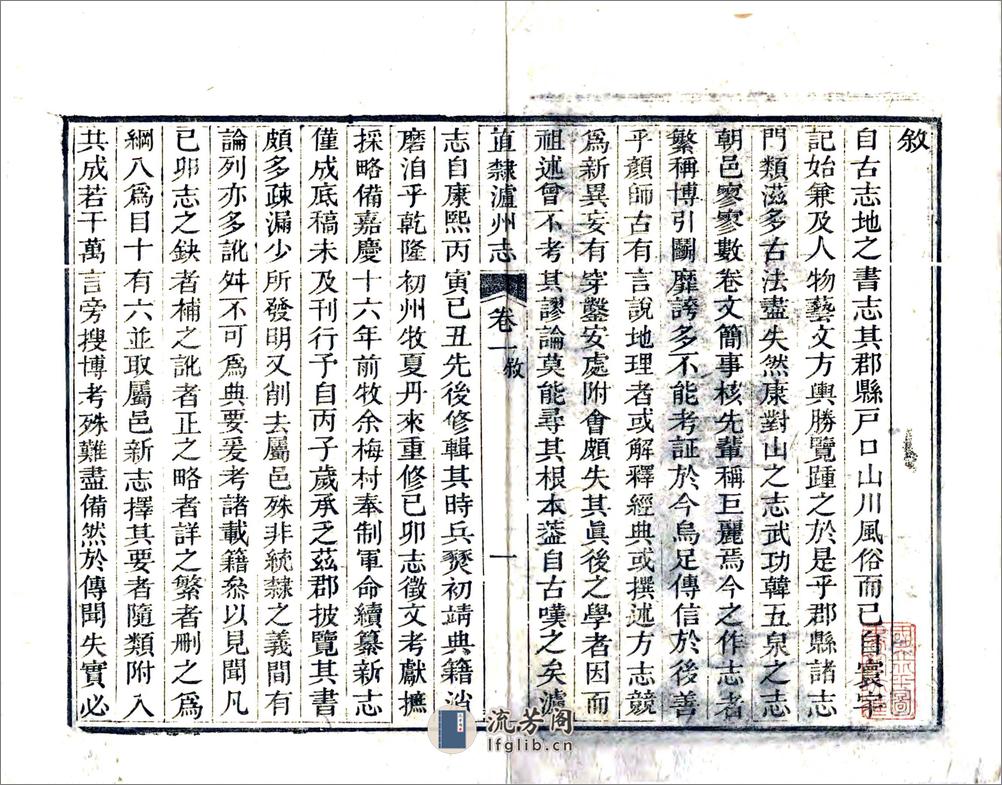 敘
自古志地之書志其郡縣戸口山川風俗而已自寰宇
記始兼及人物藝文方輿勝覽踵之於是乎郡縣諸志
門類滋多古法盡失然康對山之志武功韓五泉之志
朝邑寥寥數卷文簡事核先輩稱巨麗焉今之作志者
繁稱博引鬭靡誇多不能考証於今烏足傳信於後善
乎顏師古有言說地理者或解釋經典或撰述方志競
爲新異妄有穿鑿安處附會頗失其眞後之學者因而
祖述曾不考其謬論莫能尋其根本葢自古嘆之矣瀘
直隸瀘州志 卷一敘 一
志自康熙丙寅己丑先後修輯其時兵燹初靖典籍消
磨洎乎乾隆初州牧夏丹來重修己卯志徵文考獻摭
採略備嘉慶十六年前牧余梅村奉制軍命續纂新志
僅成底稿未及刊行予自丙子歲承乏茲郡披覽其書
頗多疎漏少所發明又削去屬邑殊非統隸之義間有
論列亦多訛舛不可爲典要爰考諸載籍叅以見聞凡
己卯志之缺者補之訛者正之略者詳之繁者刪之爲
綱八爲目十有六並取屬邑新志擇其要者隨類附入
共成若干萬言旁搜博考殊難盡備然於傳聞失實必
流芳阁
lfglib.cn